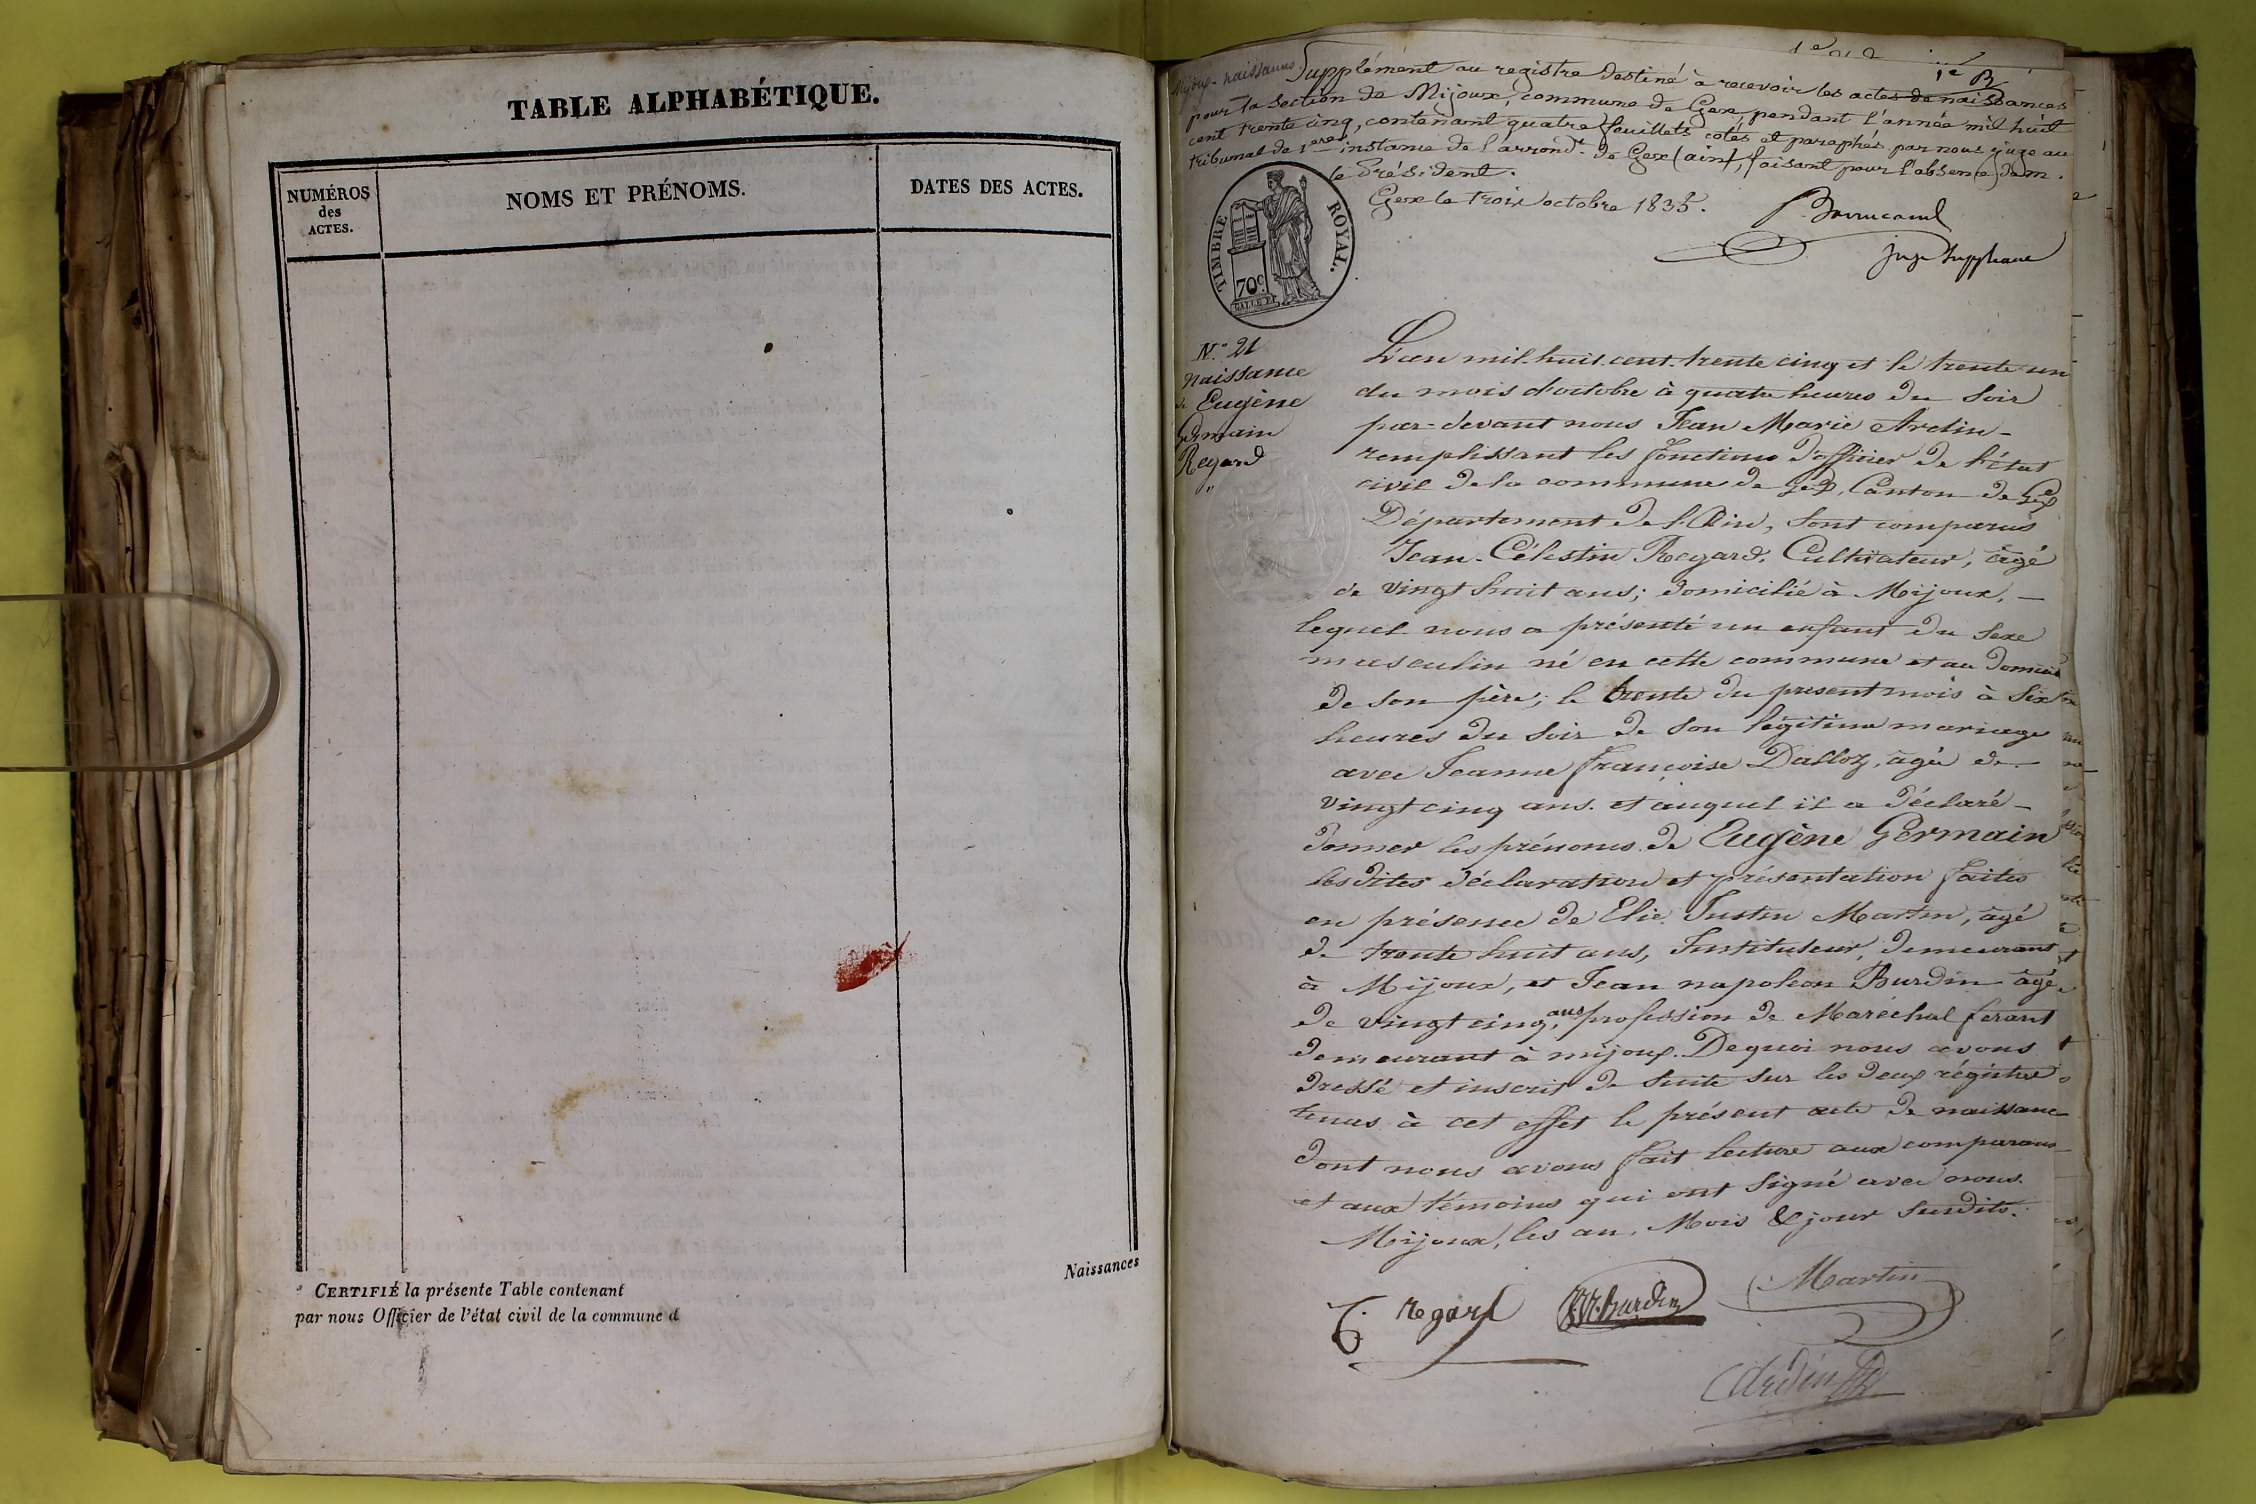 TABLE ALPHABÉTIQUE.
NUMÉROS
des
ACTES.
NOMS ET PRÉNOMS.
DATES DES ACTES.
Naissances
CERTIFIÉ la présente Table contenant
par nous Officier de l'état civil de la commune d
Mijoux - naissances.
1e
1e
Supplément au registre destiné à recevoir les actes de naissances
pour la section de Mijoux, commune de Gex, pendant l'année mil huit
cent trente cinq, contenant quatre feuillets cotés et paraphés par nous juge au
tribunal de 1ere instance de l'arrondt. de Gex (ain), faisant pour l'absence du m.
le Président.
Gex le trois octobre 1835.
juge suppléant
TIMBRE ROYAL.
70c.
N.° 21
naissance
de Eugène
Germain
Regard
"
L'an mil-huit-cent-trente cinq et le trente un
du mois d'octobre à quatre heures du soir
par-devant nous Jean Marie Ardin-
remplissant les fonctions d'officier de l'état
civil de la commune de Gex, Canton de Gex
Département de l'Ain, sont comparus
Jean-Célestin Regard, Cultivateur, âgé
de vingt huit ans; domicilié à Mijoux, -
lequel nous a présenté un enfant du sexe
masculin né en cette commune et au domicile
de son père; le trente du present mois à six
heures du soir de son légitime mariage
avec Jeanne françoise Dalloz, âgée de -
vingt cinq ans. et auquel il a déclaré -
donner les prénoms de Eugène Germain
lesdites déclaration et présentation faites
en présence de Elie Justin Martin, âgé
de trente huit ans, Instituteur, demeurant
à Mijoux, et Jean napoleon Burdin âgé
de vingt cinq ans, profession de Maréchal ferant
demeurant à mijoux. De quoi nous avons
dressé et inscrit de suite sur les deux régistres
tenus à cet effet le présent acte de naissance
dont nous avons fait lecture aux comparans
et aux témoins qui ont signé avec nous.
Mijoux, les an, Mois & jour susdits.
C. regard
J.N. burdin
Martin
Ardin